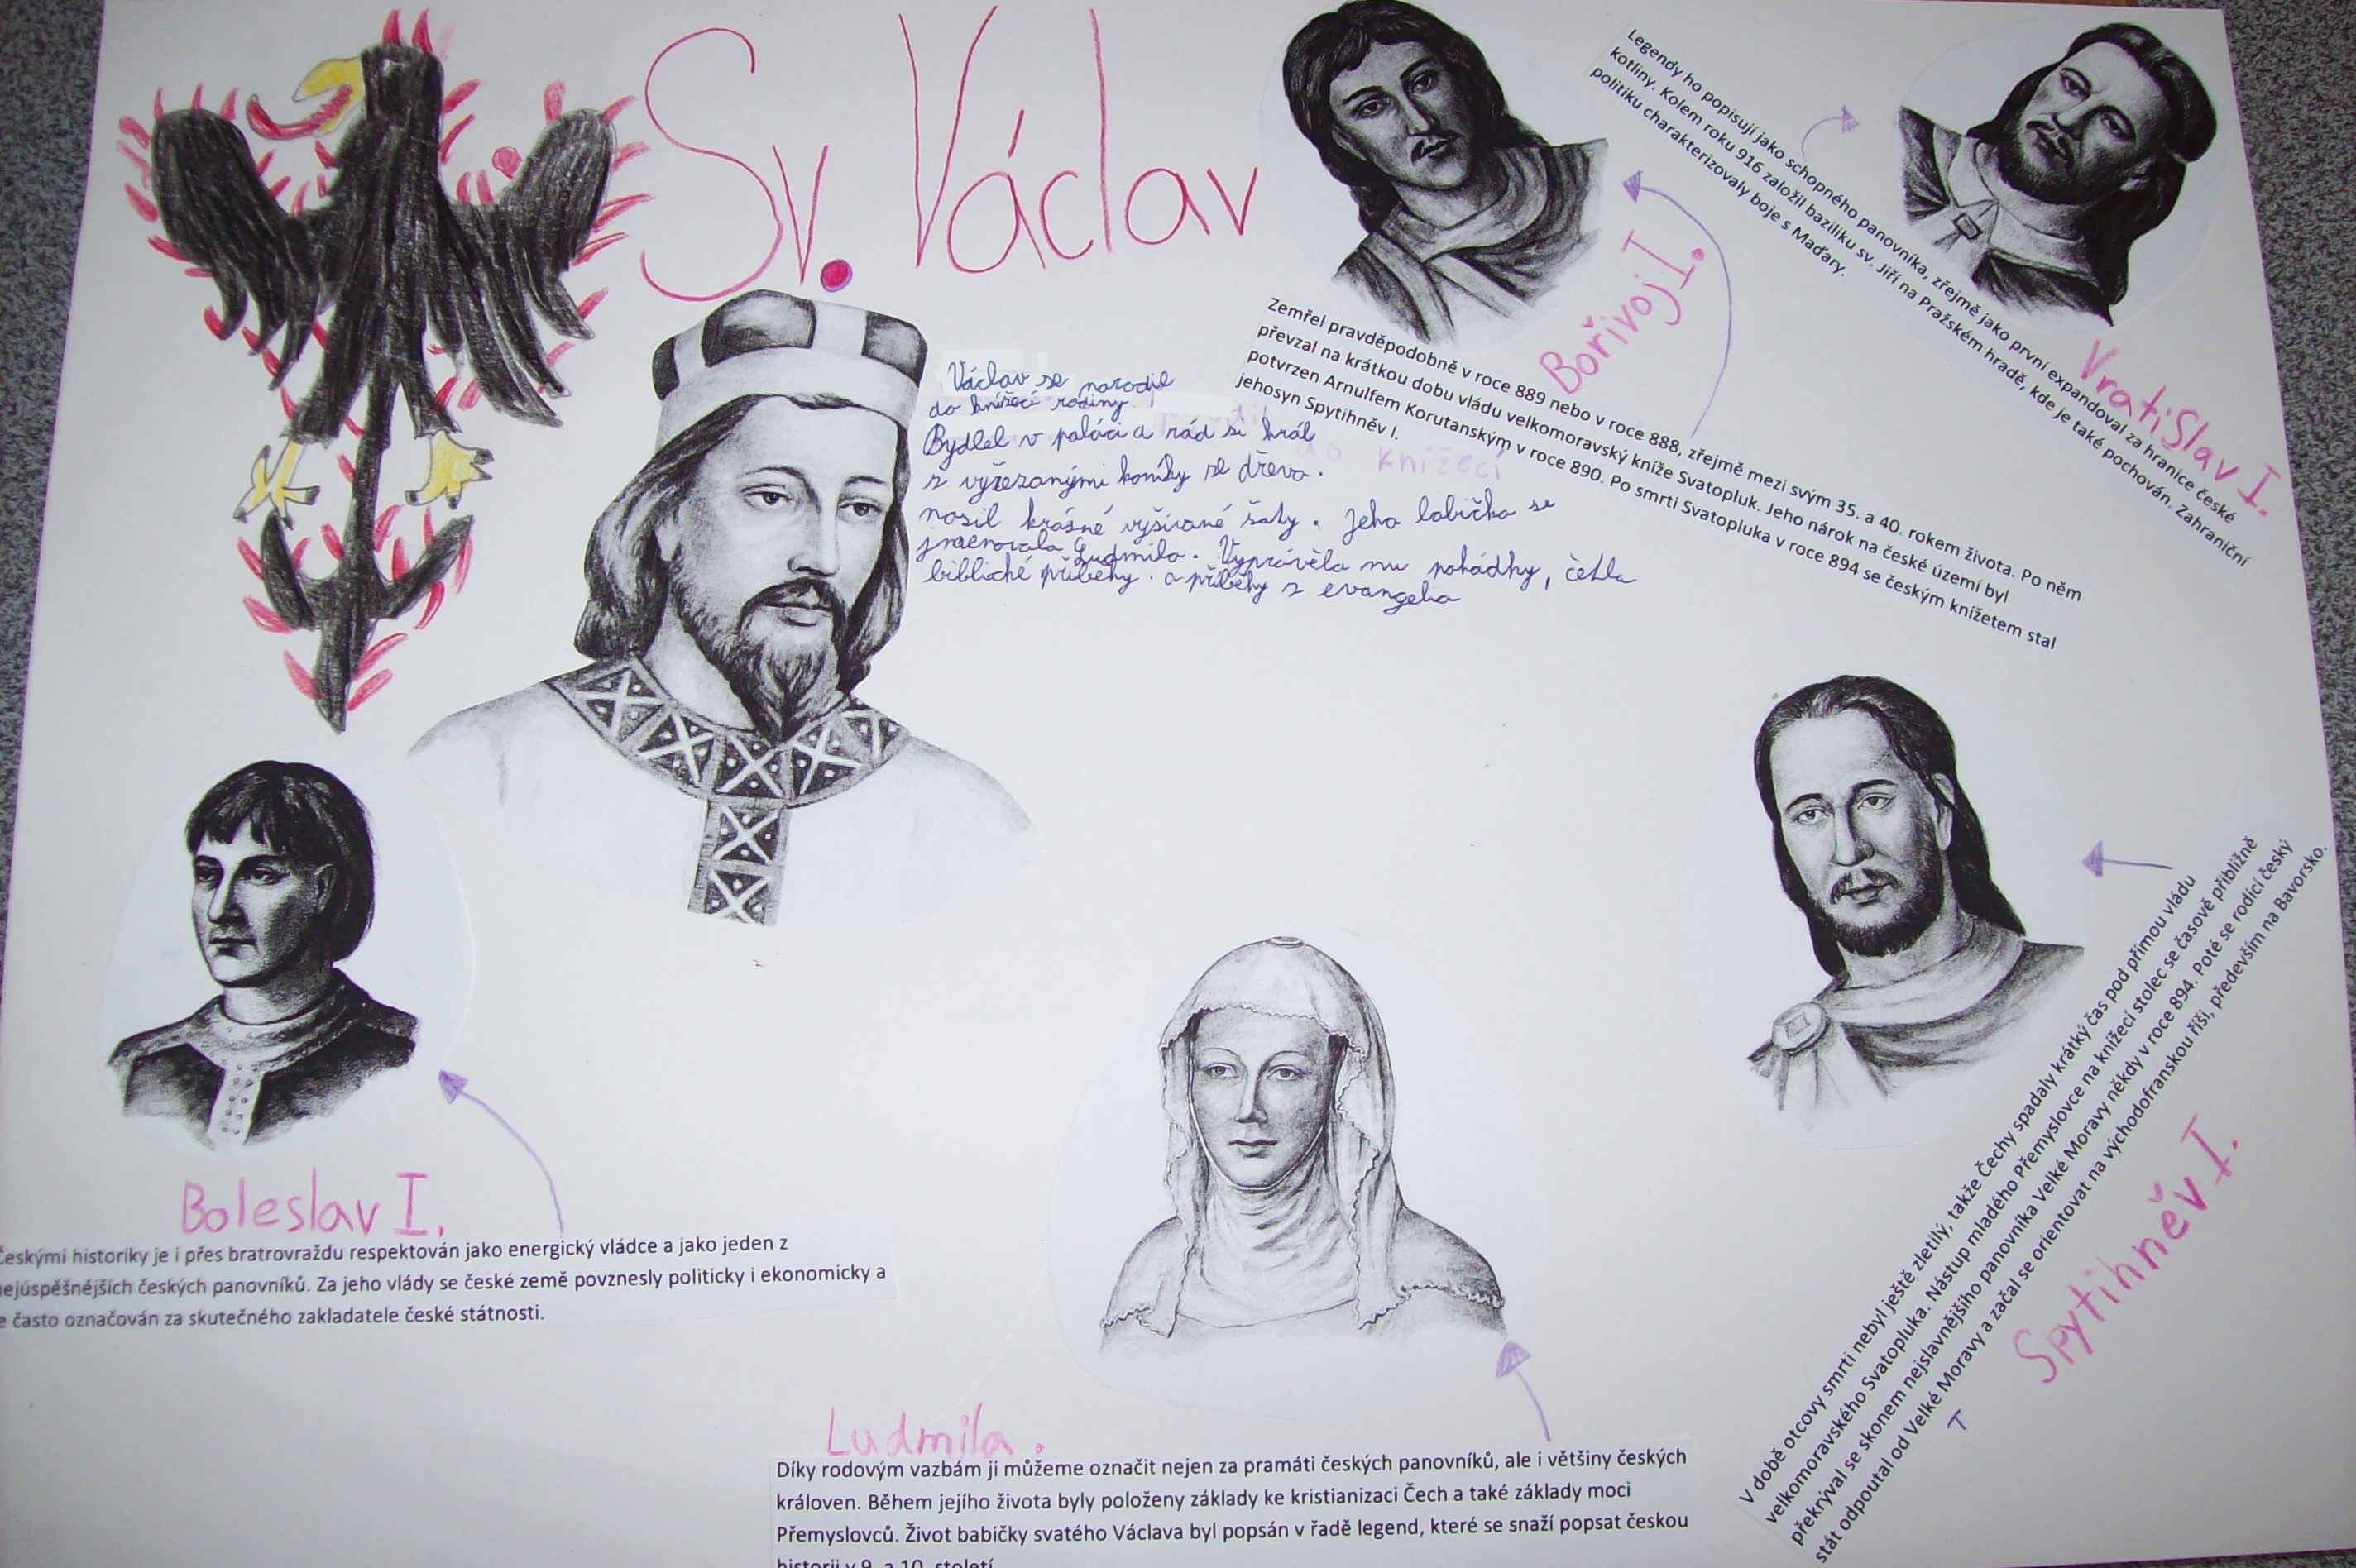 Sv. Václav
Václav se narodil
do knížecí rodiny.
Bydlel v paláci a rád si hrál
s vyřezanými koníky ze dřeva.
nosil krásné vyšívané šaty. Jeho babička se
jmenovala Ludmila. Vyprávěla mu pohádky, četla
biblické příběhy. a příběhy z evangelia
do knížecí
Bořivoj I.
Zemřel pravděpodobně v roce 889 nebo v roce 888, zřejmě mezi svým 35. a 40. rokem života. Po něm
převzal na krátkou dobu vládu velkomoravský kníže Svatopluk. Jeho nárok na české území byl
potvrzen Arnulfem Korutanským v roce 890. Po smrti Svatopluka v roce 894 se českým knížetem stal
jehosyn Spytihněv I.
Legendy ho popisují jako schopného panovníka, zřejmě jako první expandoval za hranice české
kotliny. Kolem roku 916 založil baziliku sv. Jiří na Pražském hradě, kde je také pochován. Zahraniční
politiku charakterizovaly boje s Maďary.
Vratislav I.
V době otcovy smrti nebyl ještě zletilý, takže Čechy spadaly krátký čas pod přímou vládu
velkomoravského Svatopluka. Nástup mladého Přemyslovce na knížecí stolec se časově přibližně
překrýval se skonem nejslavnějšího panovníka Velké Moravy někdy v roce 894. Poté se rodící český
stát odpoutal od Velké Moravy a začal se orientovat na východofranskou říši, především na Bavorsko.
Spytihněv I.
Boleslav I.
Českými historiky je i přes bratrovraždu respektován jako energický vládce a jako jeden z
nejúspěšnějších českých panovníků. Za jeho vlády se české země povznesly politicky i ekonomicky a
e často označován za skutečného zakladatele české státnosti.
Ludmila.
Díky rodovým vazbám ji můžeme označit nejen za pramáti českých panovníků, ale i většiny českých
královen. Během jejího života byly položeny základy ke kristianizaci Čech a také základy moci
Přemyslovců. Život babičky svatého Václava byl popsán v řadě legend, které se snaží popsat českou
historii v 9. a 10. století